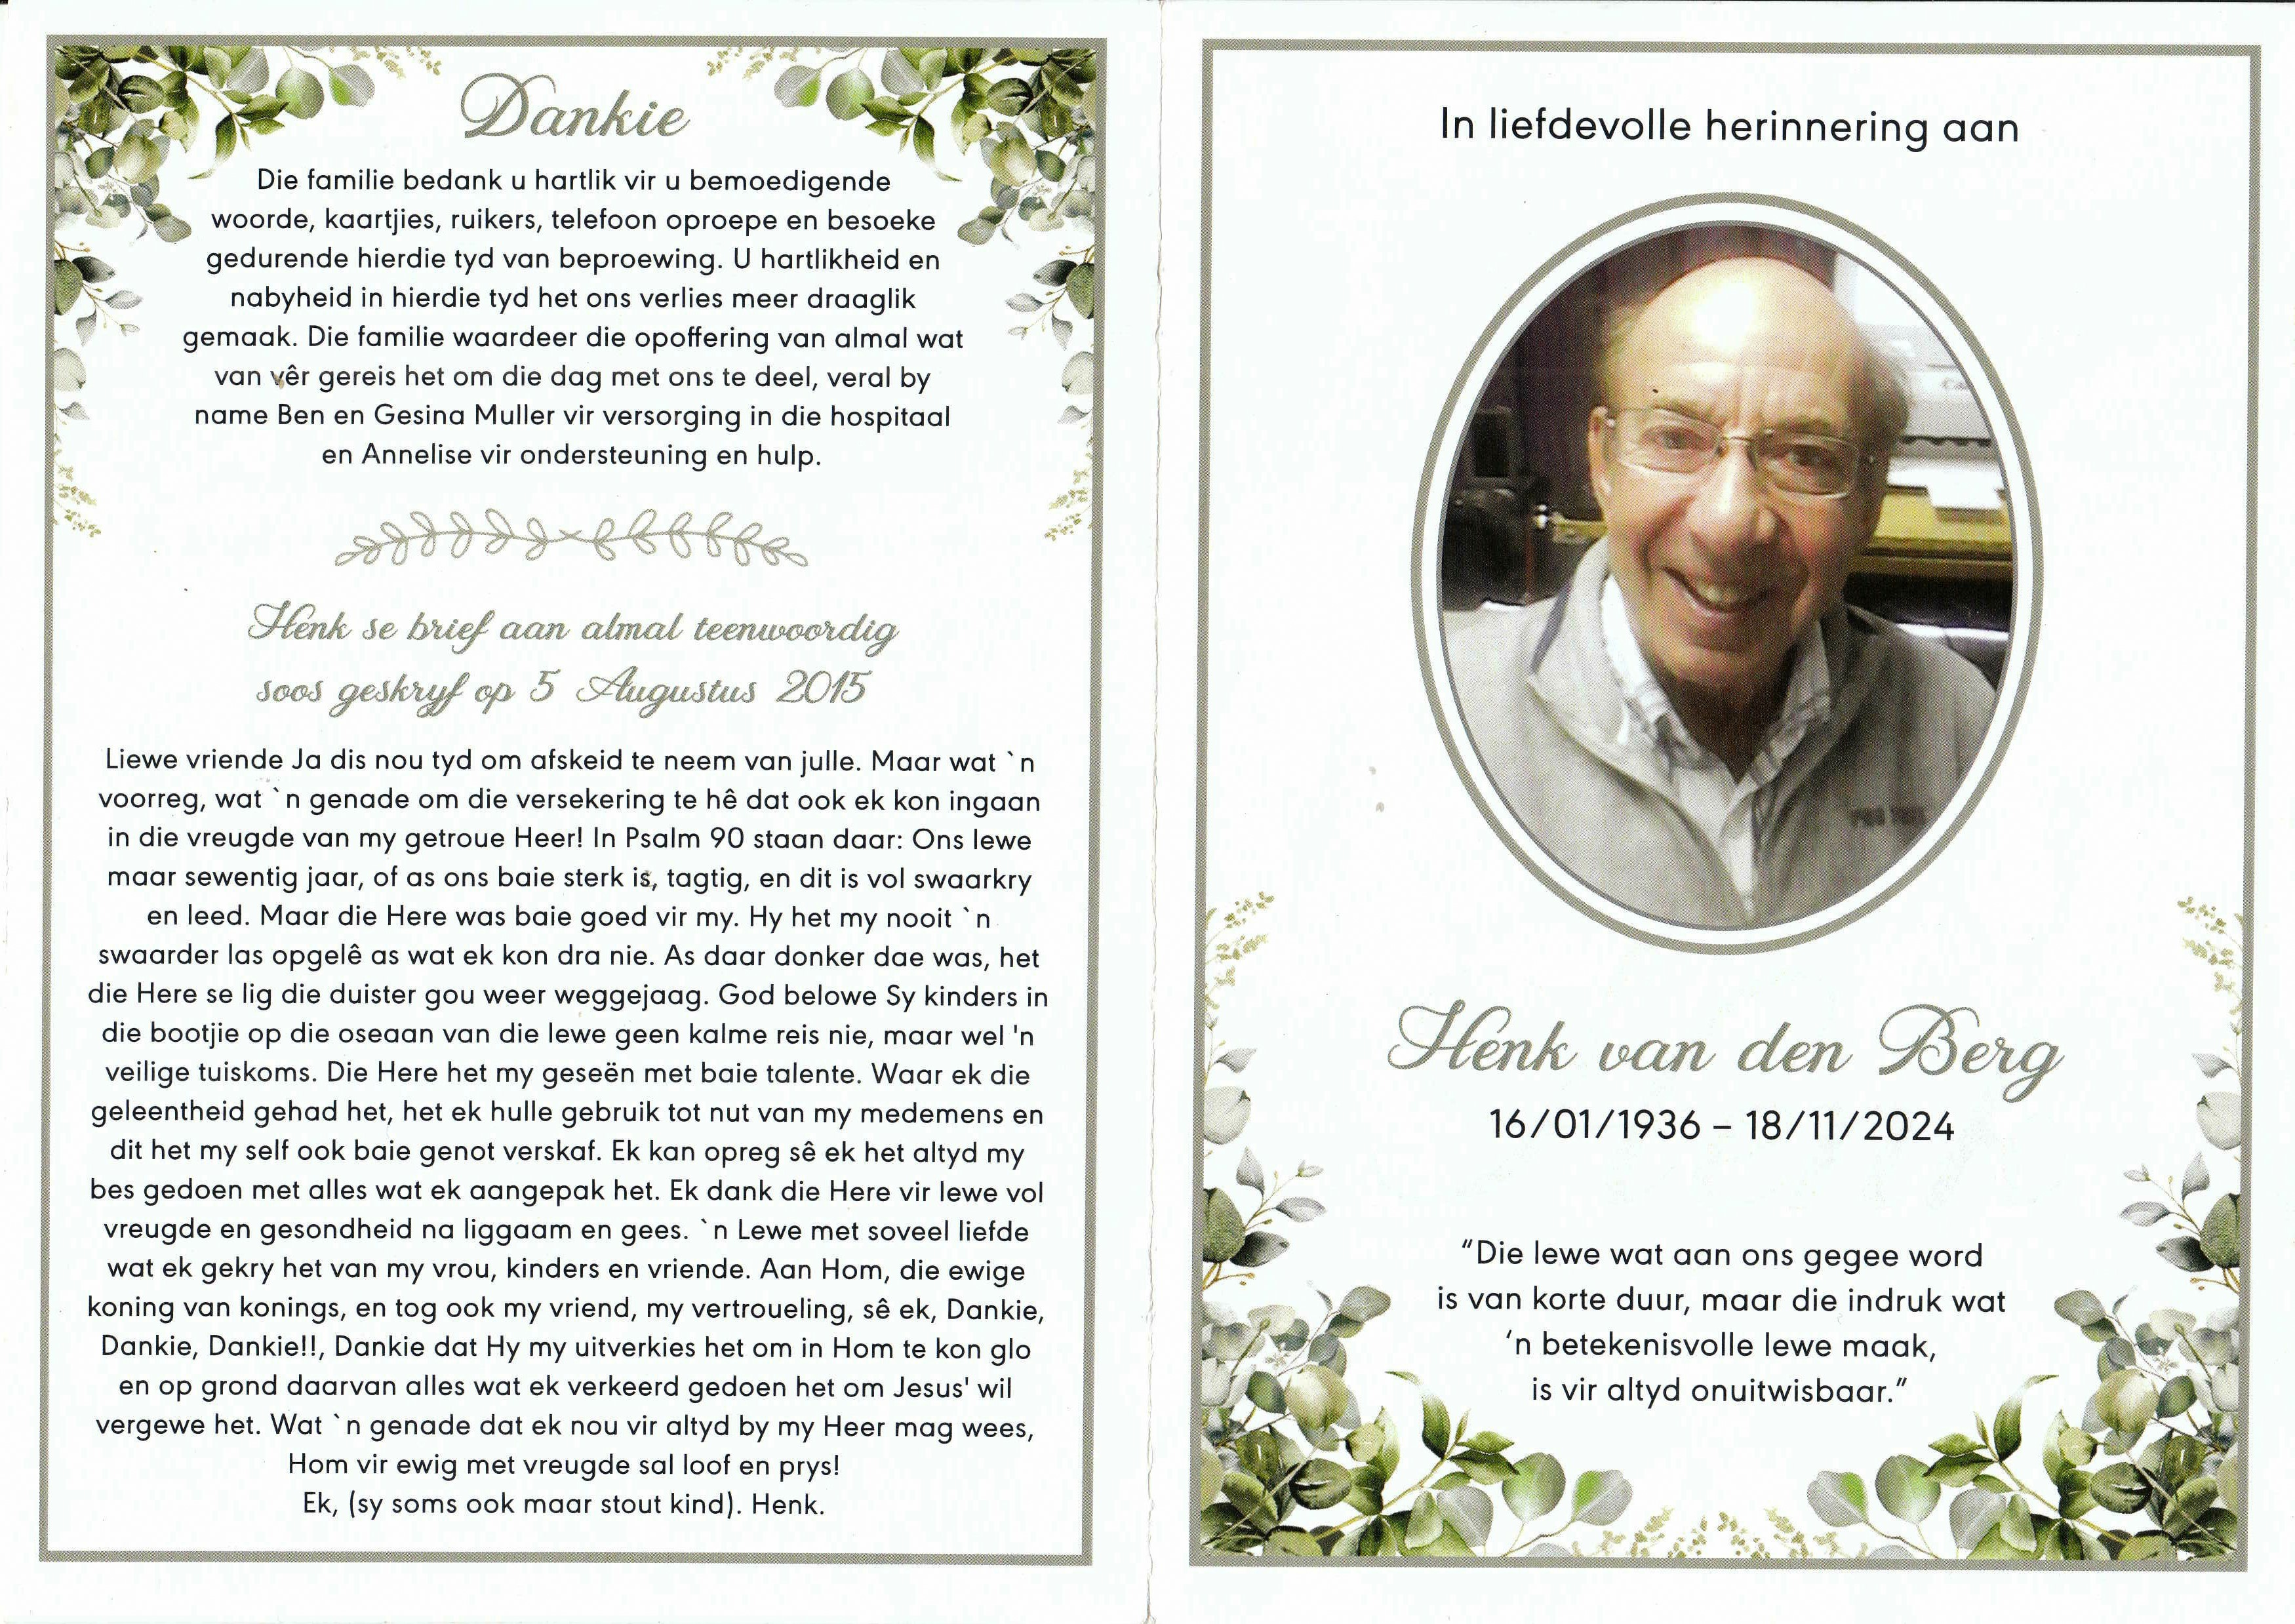 Dankie
Die familie bedank u hartlik vir u bemoedigende
woorde, kaartjies, ruikers, telefoon oproepe en besoeke
gedurende hierdie tyd van beproewing. U hartlikheid en
nabyheid in hierdie tyd het ons verlies meer draaglik
gemaak. Die familie waardeer die opoffering van almal wat
van vêr gereis het om die dag met ons te deel, veral by
name Ben en Gesina Muller vir versorging in die hospitaal
en Annelise vir ondersteuning en hulp.
Henk se brief aan almal teenwoordig
soos geskryf op 5 Augustus 2015
Liewe vriende Ja dis nou tyd om afskeid te neem van julle. Maar wat `n
voorreg, wat `n genade om die versekering te hê dat ook ek kon ingaan
in die vreugde van my getroue Heer! In Psalm 90 staan daar: Ons lewe
maar sewentig jaar, of as ons baie sterk is, tagtig, en dit is vol swaarkry
en leed. Maar die Here was baie goed vir my. Hy het my nooit `n
swaarder las opgelê as wat ek kon dra nie. As daar donker dae was, het
die Here se lig die duister gou weer weggejaag. God belowe Sy kinders in
die bootjie op die oseaan van die lewe geen kalme reis nie, maar wel 'n
veilige tuiskoms. Die Here het my geseën met baie talente. Waar ek die
geleentheid gehad het, het ek hulle gebruik tot nut van my medemens en
dit het my self ook baie genot verskaf. Ek kan opreg sê ek het altyd my
bes gedoen met alles wat ek aangepak het. Ek dank die Here vir lewe vol
vreugde en gesondheid na liggaam en gees. `n Lewe met soveel liefde
wat ek gekry het van my vrou, kinders en vriende. Aan Hom, die ewige
koning van konings, en tog ook my vriend, my vertroueling, sê ek, Dankie,
Dankie, Dankie!!, Dankie dat Hy my uitverkies het om in Hom te kon glo
en op grond daarvan alles wat ek verkeerd gedoen het om Jesus' wil
vergewe het. Wat `n genade dat ek nou vir altyd by my Heer mag wees,
Hom vir ewig met vreugde sal loof en prys!
Ek, (sy soms ook maar stout kind). Henk.
In liefdevolle herinnering aan
Henk van den Berg
16/01/1936 – 18/11/2024
“Die lewe wat aan ons gegee word
is van korte duur, maar die indruk wat
‘n betekenisvolle lewe maak,
is vir altyd onuitwisbaar.”